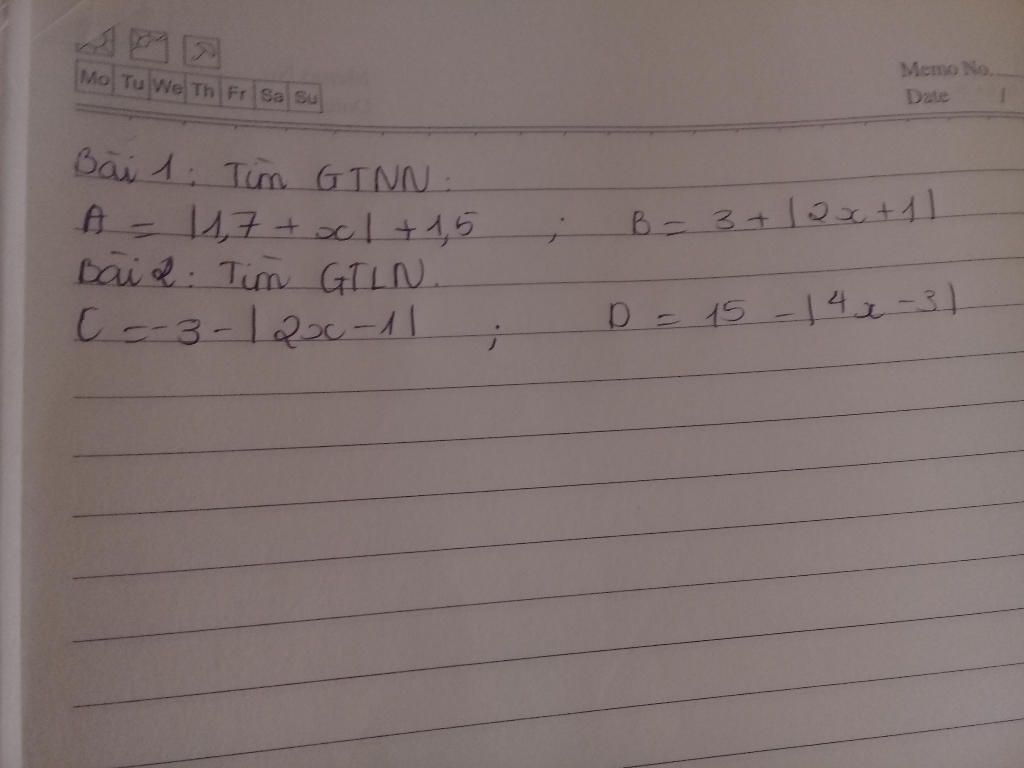 Mo Tu We Th Fr Sa Su
Memo No.
Date /
Bài 1: Tìm GTNN:
A = |1,7 + x| + 1,5 ; B = 3 + |2x + 1|
Bài 2: Tìm GTLN.
C = -3 - |2x - 1| ; D = 15 - |4x - 3|